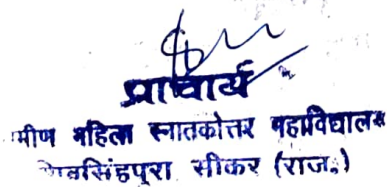 प्राचार्य
मीण महिला स्नातकोत्तर महाविद्यालय
सिंहपुरा सीकर (राज.)